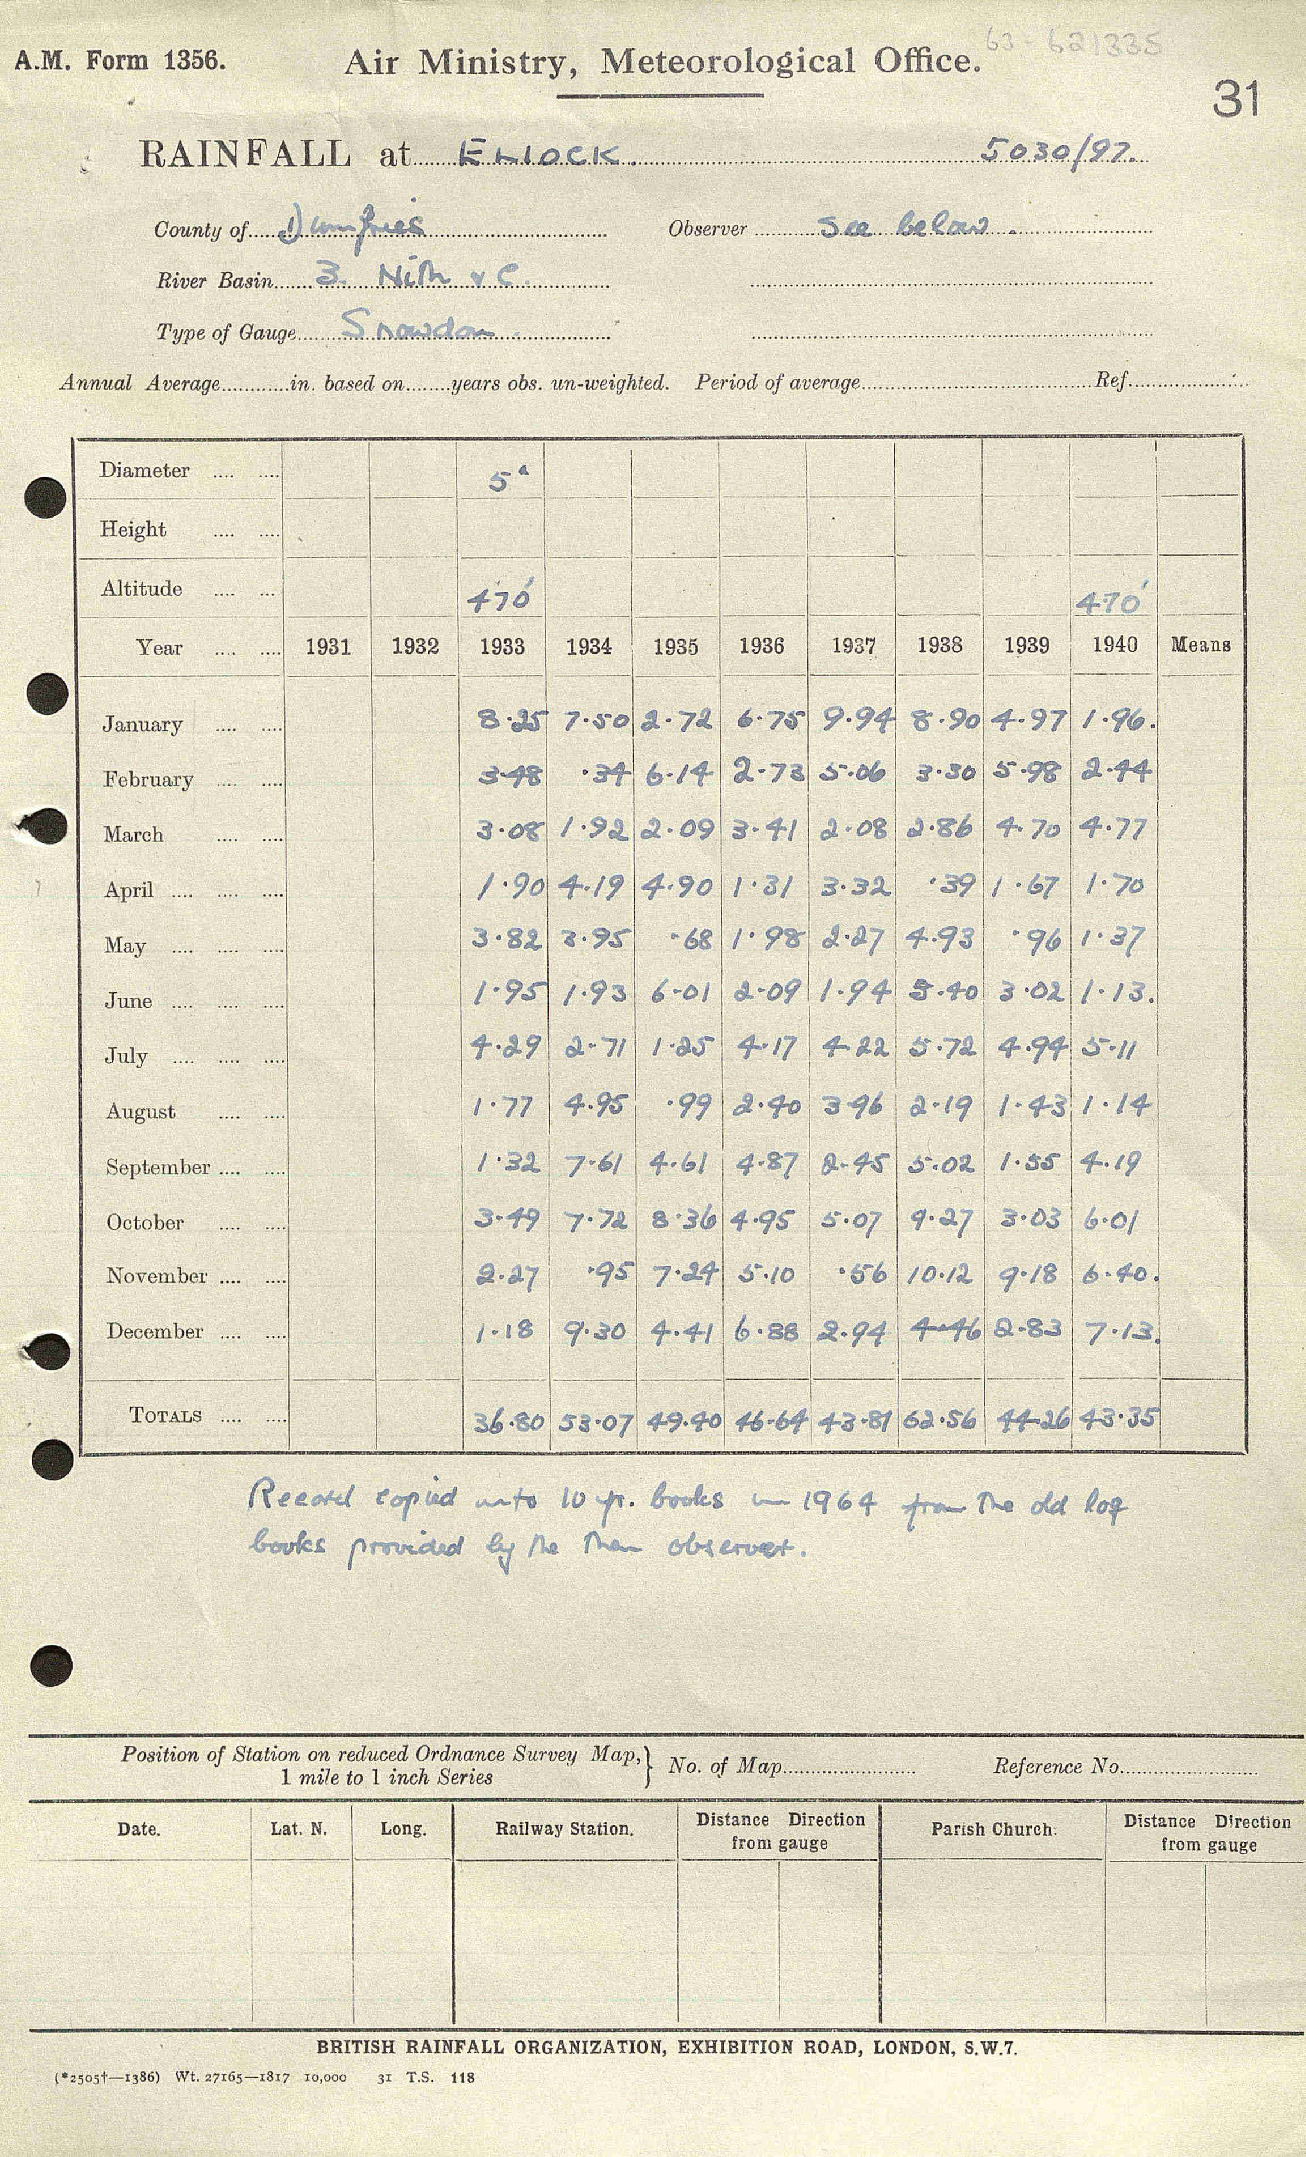 63-621335
A.M. Form 1356. Air Ministry, Meteorological Office.
31
RAINFALL at ELIOCK. 5030/97.
County of Dumfries Observer See below.
River Basin 3. Nith & C.
Type of Gauge Snowdon.
Annual Average in. based on years obs. un-weighted. Period of average Ref.
Diameter 5"
Height
Altitude 470' 470'
Year 1931 1932 1933 1934 1935 1936 1937 1938 1939 1940 Means
January 8.25 7.50 2.72 6.75 9.94 8.90 4.97 1.96.
February 3.48 .34 6.14 2.73 5.06 3.30 5.98 2.44
March 3.08 1.92 2.09 3.41 2.08 2.86 4.70 4.77
April 1.90 4.19 4.90 1.31 3.32 .39 1.67 1.70
May 3.82 3.95 .68 1.98 2.27 4.93 .96 1.37
June 1.95 1.93 6.01 2.09 1.94 5.40 3.02 1.13.
July 4.29 2.71 1.25 4.17 4.22 5.72 4.94 5.11
August 1.77 4.95 .99 2.40 3.96 2.19 1.43 1.14
September 1.32 7.61 4.61 4.87 2.45 5.02 1.55 4.19
October 3.49 7.72 8.36 4.95 5.07 9.27 3.03 6.01
November 2.27 .95 7.24 5.10 .56 10.12 9.18 6.40.
December 1.18 9.30 4.41 6.88 2.94 4.46 2.83 7.13.
TOTALS 36.80 53.07 49.40 46.64 43.81 62.56 44.26 43.35
Record copied unto 10 yr. books in 1964 from the old log
books provided by the then observer.
Position of Station on reduced Ordnance Survey Map, } No. of Map Reference No.
1 mile to 1 inch Series
Date. Lat. N. Long. Railway Station. Distance Direction from gauge Parish Church. Distance Direction from gauge
BRITISH RAINFALL ORGANIZATION, EXHIBITION ROAD, LONDON, S.W.7.
(*2505†—1386) Wt. 27165—1817 10,000 31 T.S. 118